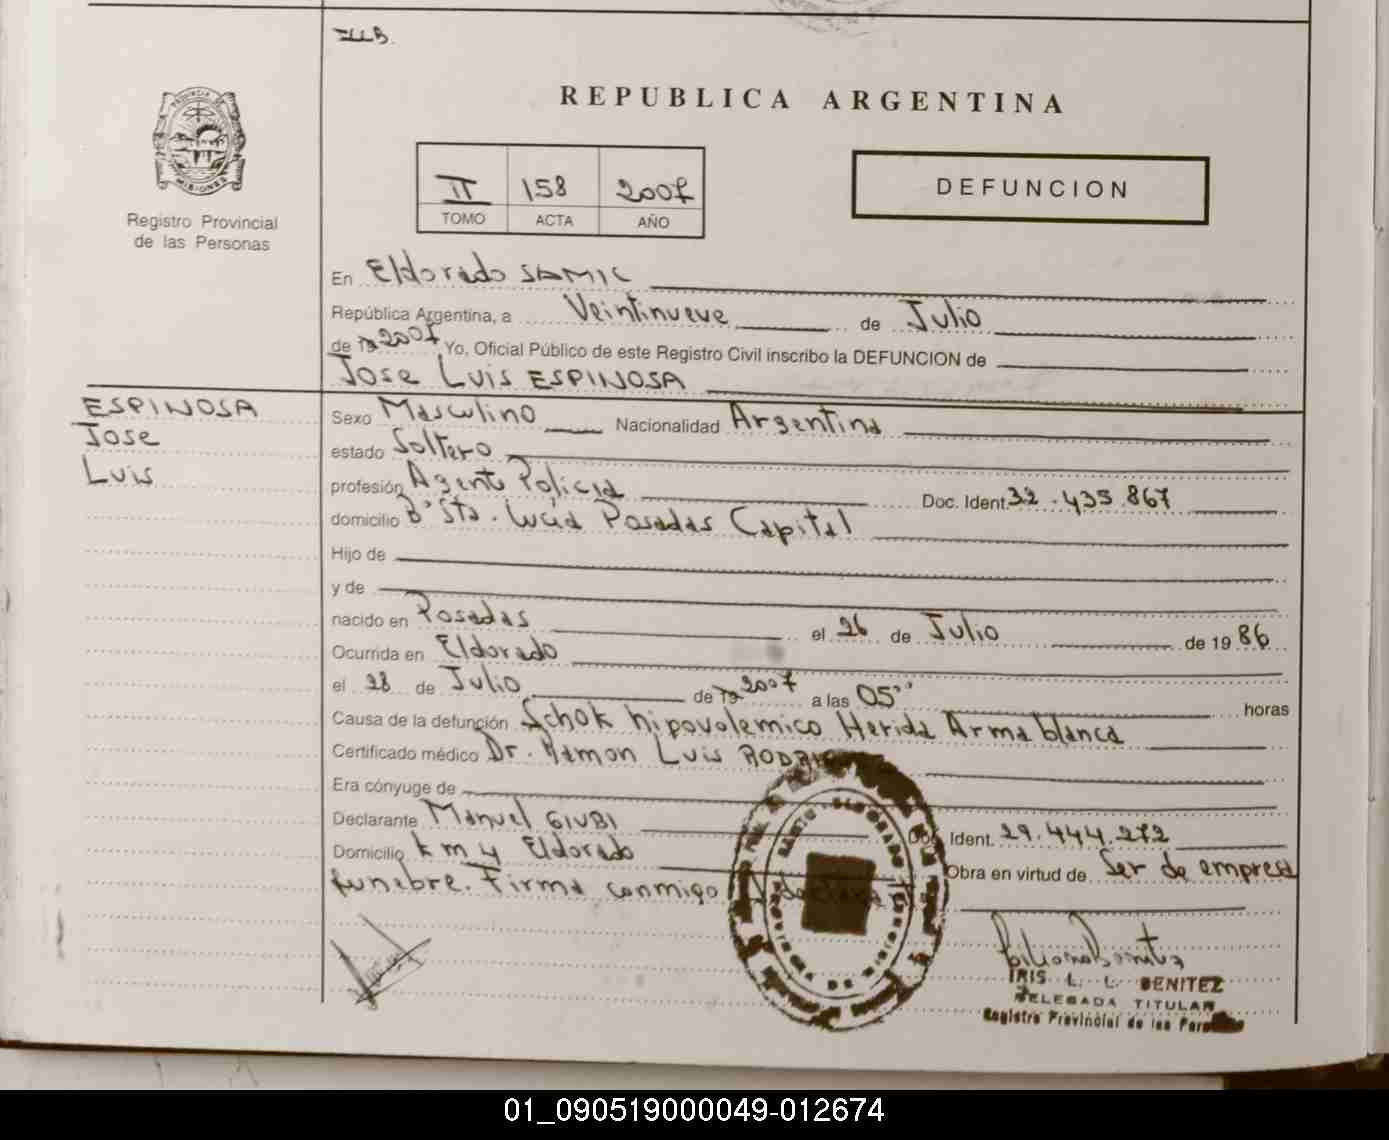 ILLB.
REPUBLICA ARGENTINA
PROVINCIA DE
MISIONES
Registro Provincial
de las Personas
II 158 2007
TOMO ACTA AÑO
DEFUNCION
En Eldorado SAMIC
República Argentina, a Veintinueve de Julio
de 19 2007 Yo, Oficial Público de este Registro Civil inscribo la DEFUNCION de
Jose Luis ESPINOSA
ESPINOSA
Jose
Luis
Sexo Masculino Nacionalidad Argentina
estado Soltero
profesión Agente Policia Doc. Ident. 32.435.867
domicilio B° Sta. Lucia Posadas Capital
Hijo de
y de
nacido en Posadas el 26 de Julio de 19 86
Ocurrida en Eldorado
el 28 de Julio de 19 2007 a las 05'' horas
Causa de la defunción Schok hipovolemico Herida Arma blanca
Certificado médico Dr. Ramon Luis
Era cónyuge de
Declarante Manuel GIUBI Doc. Ident. 29.444.272
Domicilio km 4 Eldorado Obra en virtud de Ser de empresa
funebre. Firma conmigo
IRIS L. L. BENITEZ
DELEGADA TITULAR
Registro Provincial de las Personas
01_090519000049-012674